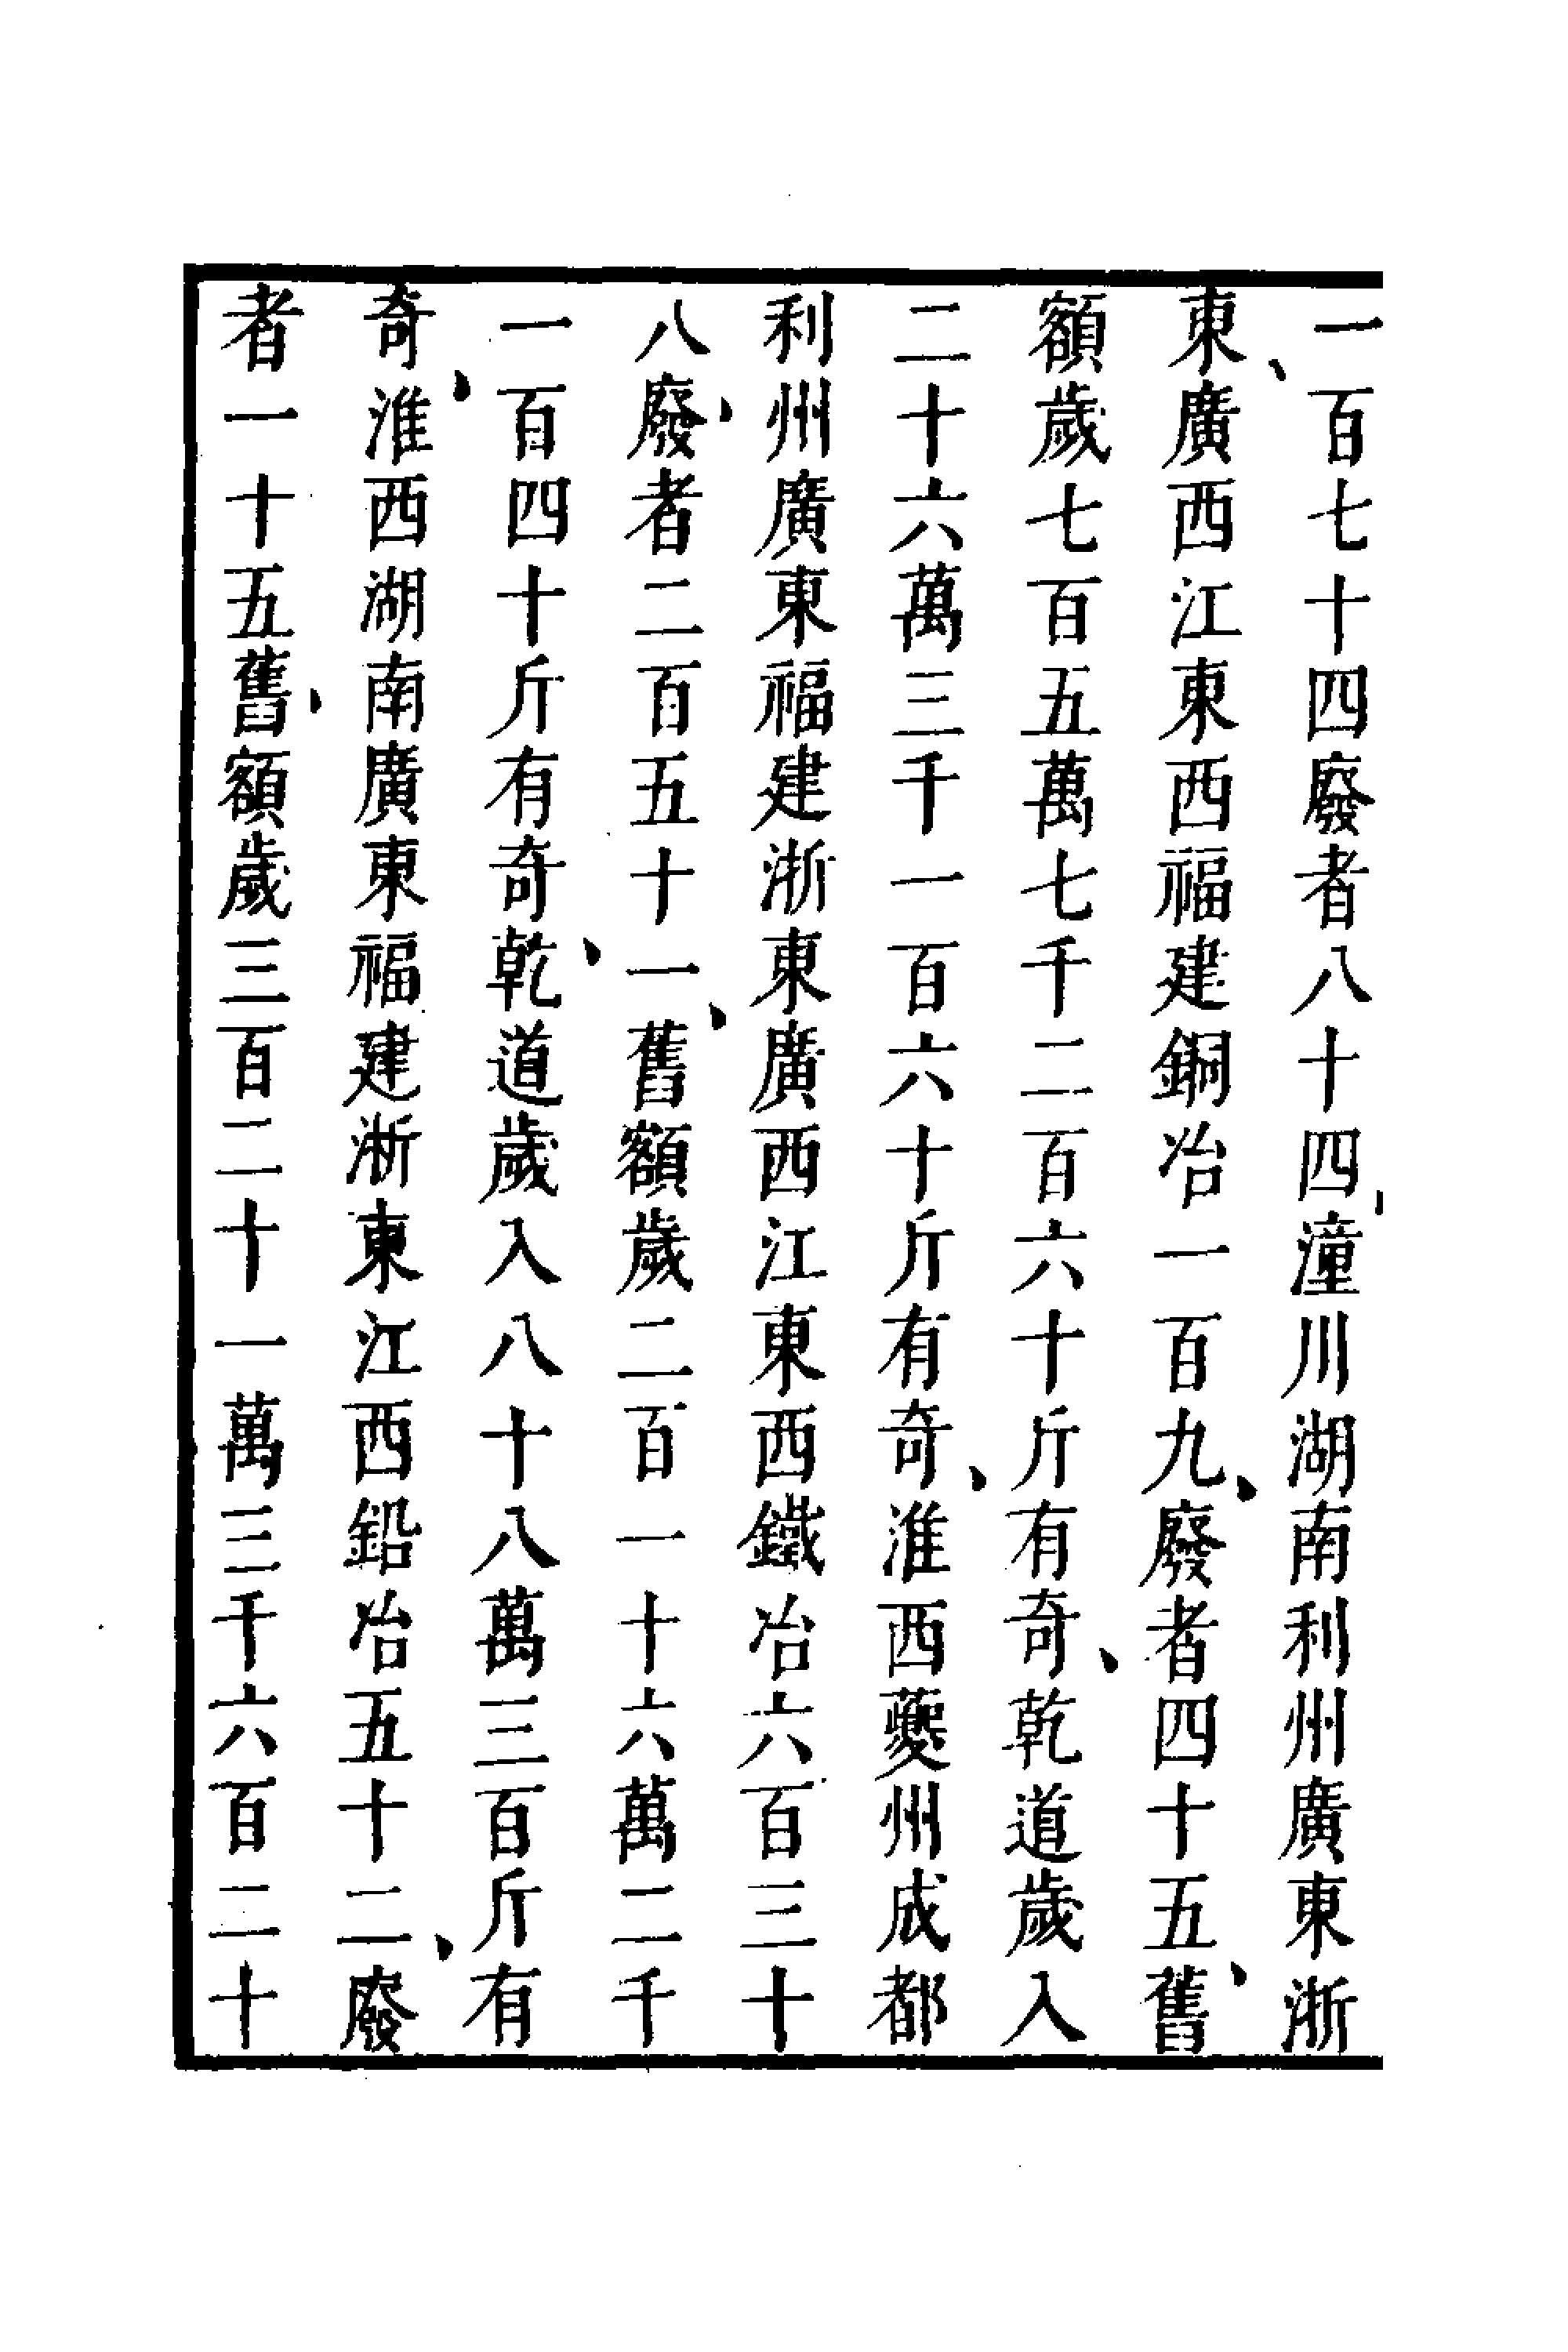 一百七十四廢者八十四、潼川湖南利州廣東浙
東、廣西江東西福建銅冶一百九、廢者四十五、舊
額歲七百五萬七千二百六十斤有奇、乾道歲入
二十六萬三千一百六十斤有奇、淮西夔州成都
利州廣東福建浙東廣西江東西鐵冶六百三十
八、廢者二百五十一、舊額歲二百一十六萬二千
一百四十斤有奇、乾道歲入八十八萬三百斤有
奇、淮西湖南廣東福建浙東江西鉛冶五十二、廢
者一十五、舊額歲三百二十一萬三千六百二十